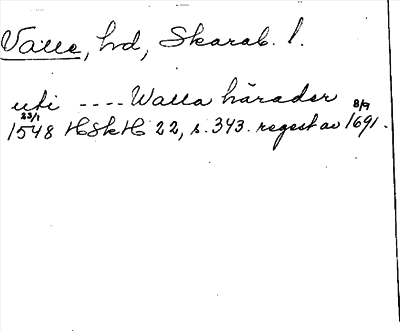 Valle, hd, Skarab. l.
uti ---- Walla härader
23/1 8/7
1548 HSkH 22, s. 343. regest av 1691.